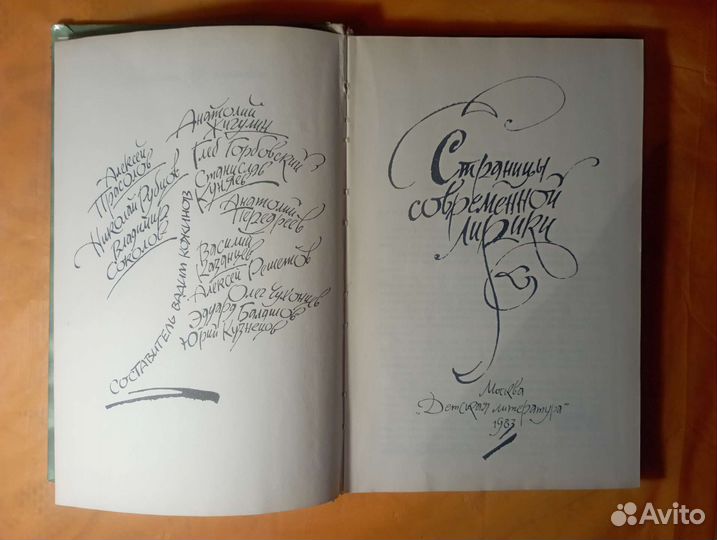 Алексей
Прасолов
Николай Рубцов
Владимир
Соколов
Анатолий
Жигулин
Глеб Горбовский
Станислав
Куняев
Анатолий
Передреев
Василий
Казанцев
Алексей Решетов
Олег Чухонцев
Эдуард Балашов
Юрий Кузнецов
СОСТАВИТЕЛЬ ВАДИМ КОЖИНОВ
Страницы
современной
лирики
Москва
„Детская литература“
1983
Avito